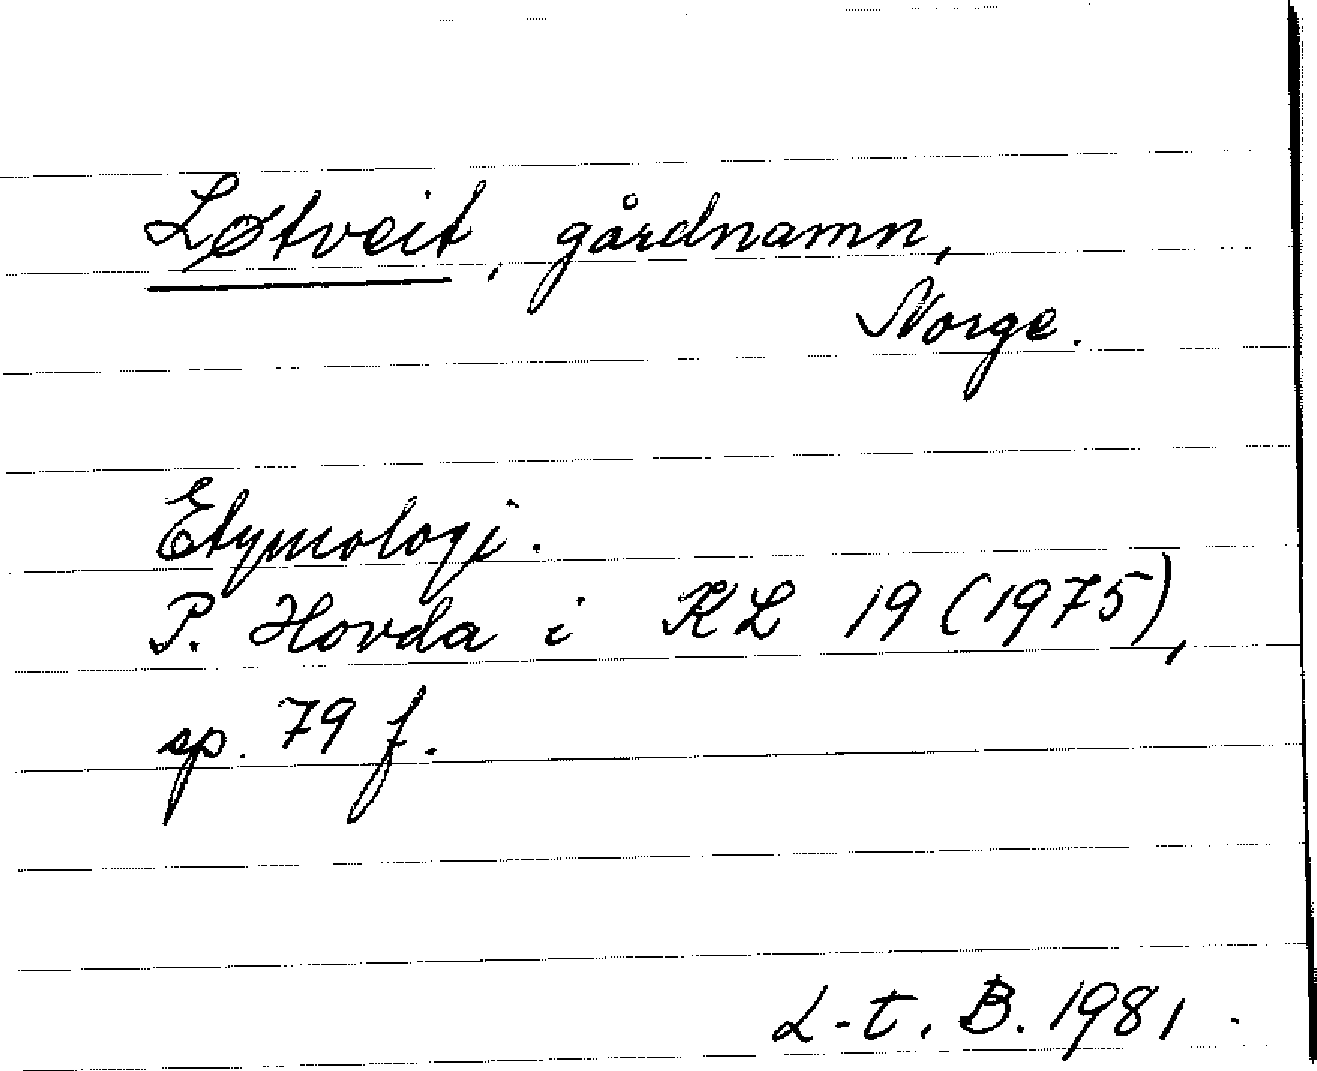 Løtveit, gårdnamn,
Norge.
Etymologi.
P. Hovda i KL 19 (1975),
sp. 79 f.
L-t. B. 1981.